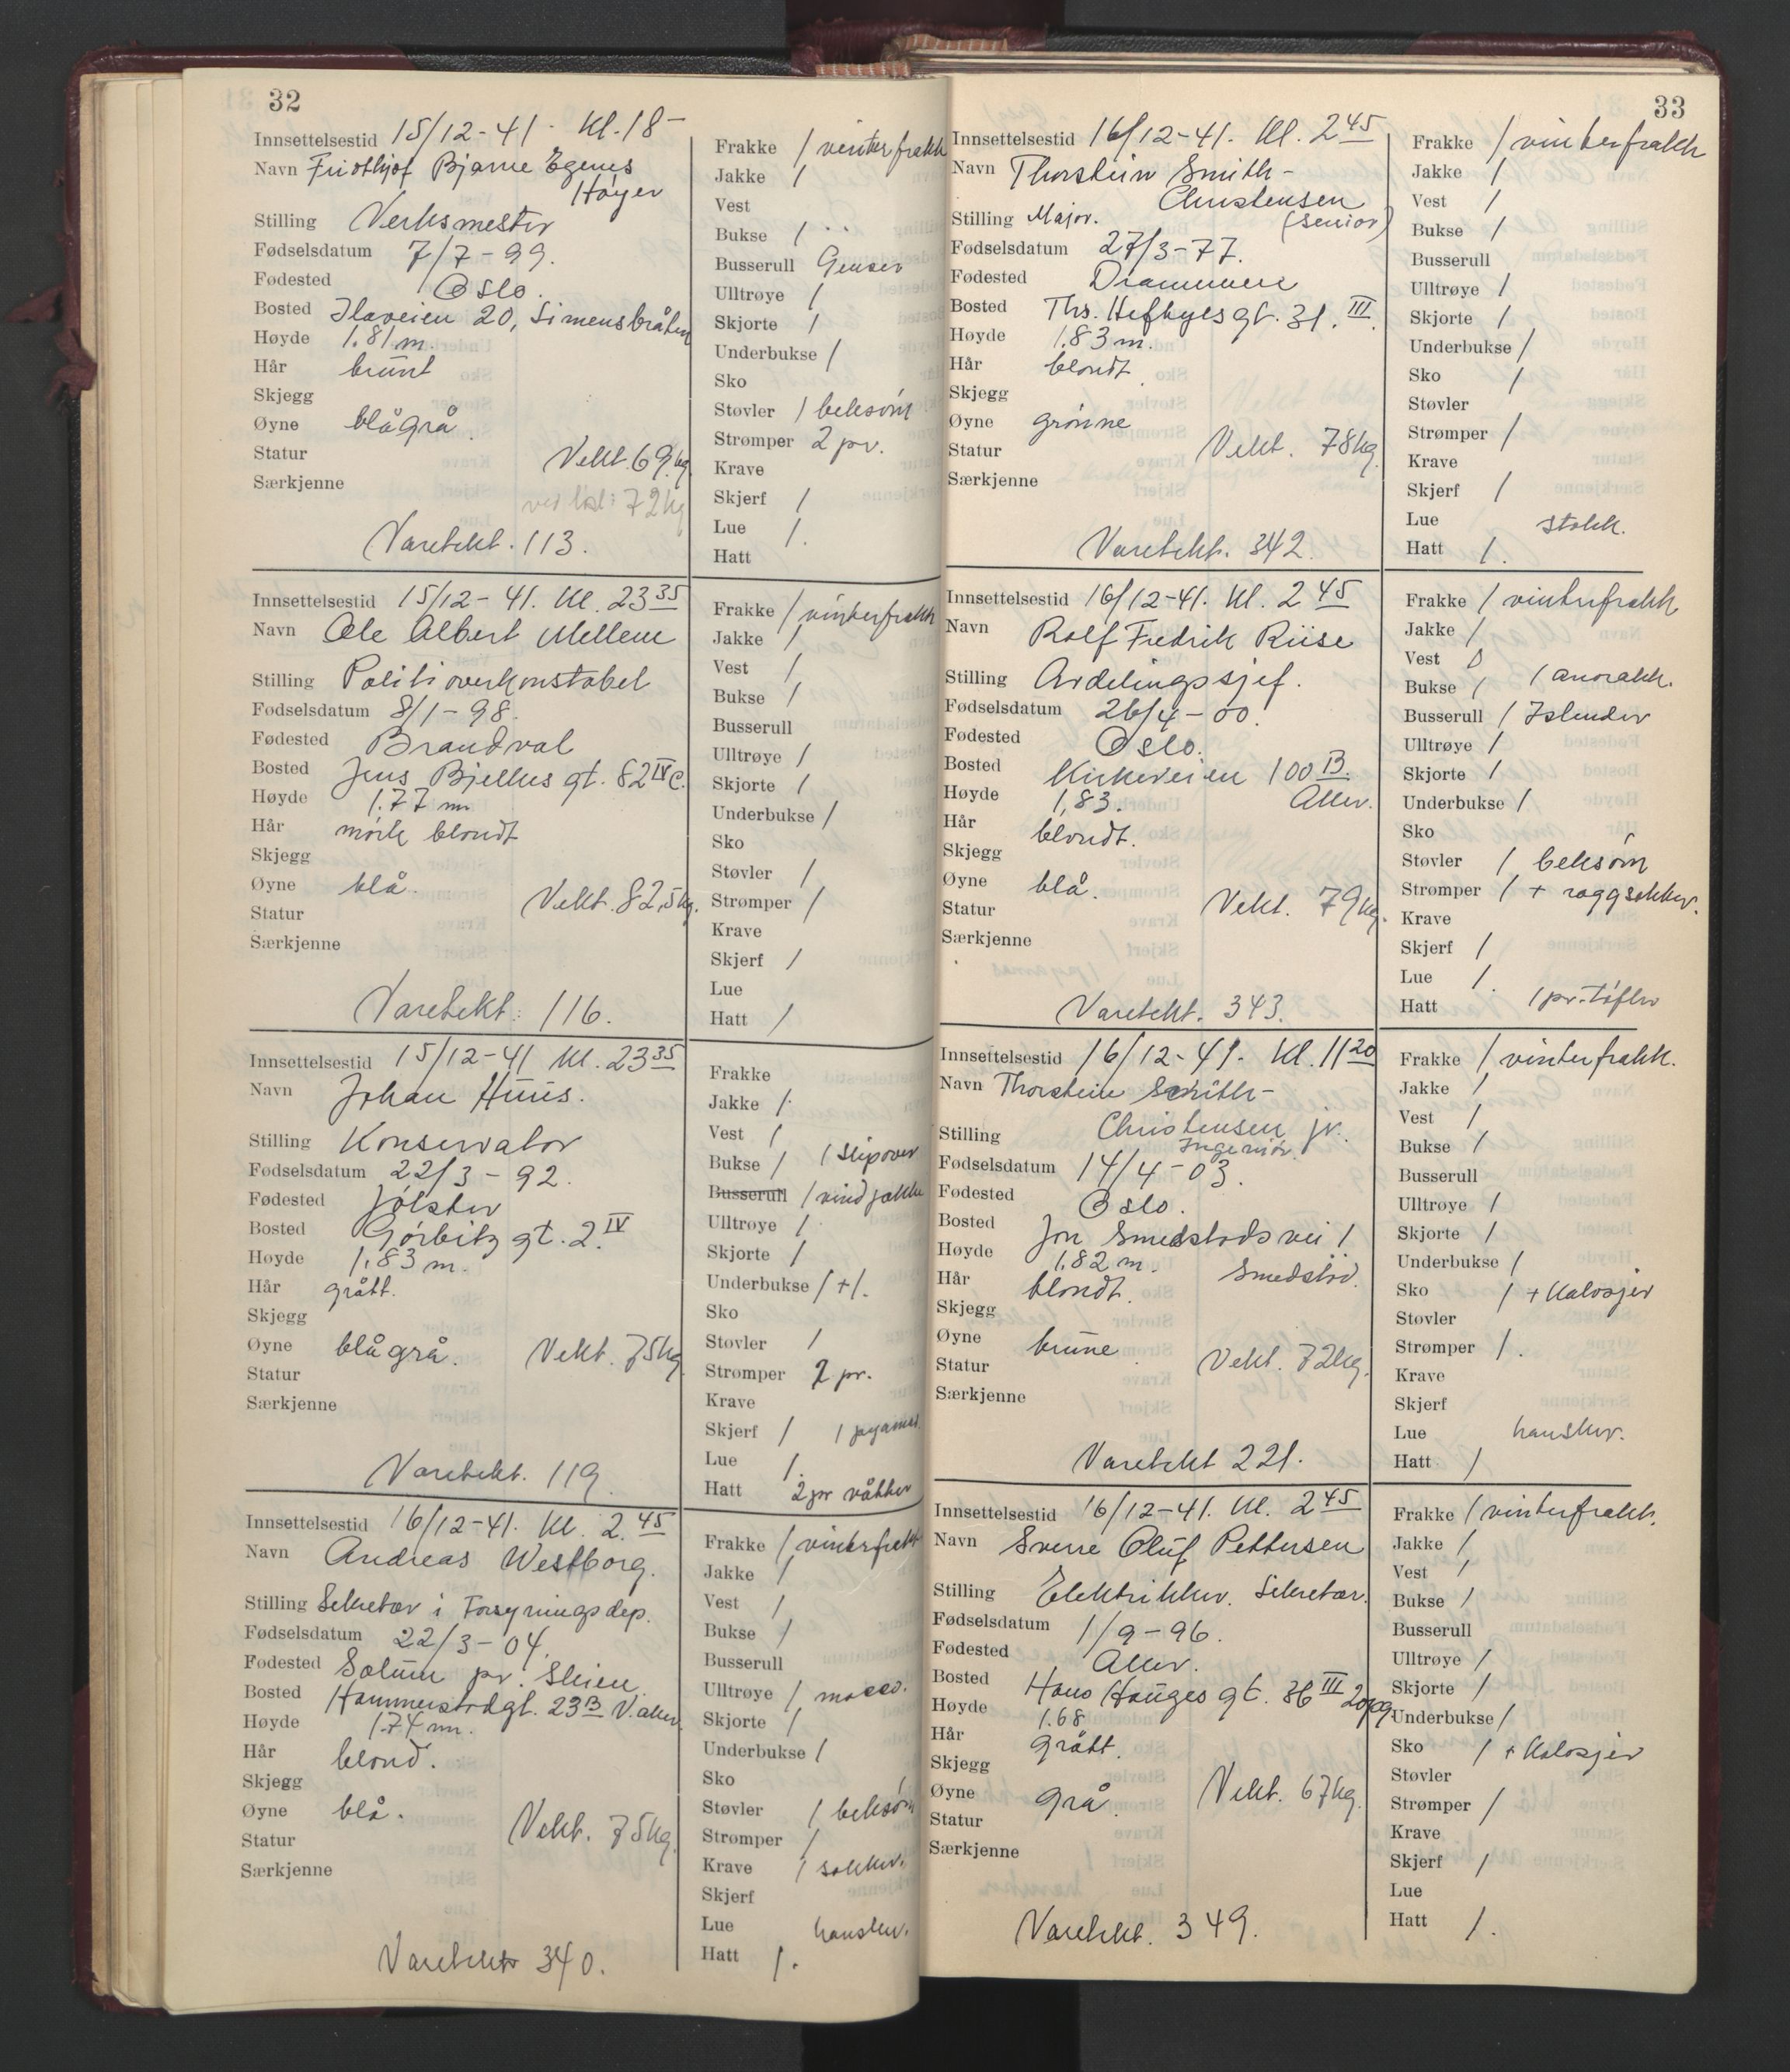 32
Innsettelsestid 15/12-41. Kl. 18 -
Navn Fridthjof Bjarne Egenes
Høyer
Stilling Verksmester
Fødselsdatum 7/7-99.
Fødested Oslo.
Bosted Ilaveien 20, Simensbråten
Høyde 1.81 m.
Hår brunt
Skjegg
Øyne blågrå.
Statur Vekt. 69 kg
Særkjenne
72 kg
Varetekt. 113.
Frakke / vinterfrakk
Jakke /
Vest
Bukse /
Busserull Genser
Ulltrøye /
Skjorte /
Underbukse /
Sko
Støvler / beksøm
Strømper 2 pr.
Krave
Skjerf /
Lue /.
Hatt
Innsettelsestid 15/12-41. Kl. 23 35
Navn Ole Albert Mellem
Stilling Politioverkonstabel
Fødselsdatum 8/1-98.
Fødested Brandval
Bosted Jens Bjelkes gt. 82 IV c.
Høyde 1.77 m
Hår mørk blondt
Skjegg
Øyne blå.
Statur Vekt. 82,5 kg.
Særkjenne
Varetekt: 116.
Frakke / vinterfrakk
Jakke /
Vest /
Bukse /
Busserull
Ulltrøye /
Skjorte /
Underbukse /
Sko
Støvler /
Strømper /
Krave
Skjerf /
Lue
Hatt /
Innsettelsestid 15/12-41 Kl. 23 35
Navn Johan Huus.
Stilling Konservator
Fødselsdatum 22/3-92.
Fødested Jølster
Bosted Gørbitz gt. 2. IV
Høyde 1.83 m.
Hår grått.
Skjegg
Øyne blågrå. Vekt. 75 kg
Statur
Særkjenne
Varetekt. 119.
Frakke
Jakke /
Vest /
Bukse / 1 slipover
Busserull / vindjakke
Ulltrøye /
Skjorte /
Underbukse / + /.
Sko
Støvler /
Strømper 2 pr.
Krave
Skjerf / 1 pyamas
Lue /.
Hatt 2 pr våtter
Innsettelsestid 16/12-41. Kl. 2.45
Navn Andreas Westborg.
Stilling Sekretær i Forsyningsdep.
Fødselsdatum 22/3-04.
Fødested Solum pr. Skien
Bosted Hammerstadgt. 23 B V. Aker
Høyde 1.74 m.
Hår blond.
Skjegg
Øyne blå.
Statur Vekt. 75 kg
Særkjenne
Varetekt 340.
Frakke / vinterfrakk
Jakke /
Vest /
Bukse /
Busserull
Ulltrøye / macco.
Skjorte /
Underbukse /
Sko
Støvler / beksøm
Strømper /
Krave / sokker.
Skjerf
Lue hansker.
Hatt /.
33
Innsettelsestid 16/12-41. Kl. 2 45
Navn Thorstein Smith-
Christensen
Stilling Major. (senior)
Fødselsdatum 27/3-77.
Fødested Drammen
Bosted Ths. Heftyes gt. 31. III.
Høyde 1.83 m.
Hår blondt
Skjegg
Øyne grønne
Statur Vekt. 78 kg.
Særkjenne
Varetekt. 342.
Frakke / vinterfrakk
Jakke /
Vest /
Bukse /
Busserull
Ulltrøye /
Skjorte /
Underbukse /
Sko /
Støvler
Strømper /
Krave
Skjerf /
Lue stokk.
Hatt /.
Innsettelsestid 16/12-41. Kl. 2 45
Navn Rolf Fredrik Riise
Stilling Avdelingssjef.
Fødselsdatum 26/4-00.
Fødested Oslo.
Bosted Kirkeveien 100 B.
Høyde 1,83. Aker.
Hår blondt.
Skjegg
Øyne blå.
Statur Vekt. 79 kg.
Særkjenne
Varetekt. 343.
Frakke / vinterfrakk
Jakke /
Vest 0
Bukse / 1 anorakk.
Busserull / Islender
Ulltrøye /
Skjorte /
Underbukse /
Sko
Støvler / beksøm
Strømper / + raggsokker.
Krave
Skjerf /
Lue /.
Hatt 1 pr. tøfler
Innsettelsestid 16/12-41. Kl. 11 20
Navn Thorstein Smith-
Christensen jr.
Stilling Ingeniør.
Fødselsdatum 14/4-03.
Fødested Oslo.
Bosted Jon Smedstads vei 1
Høyde 1.82 m. Smedstad.
Hår blondt.
Skjegg
Øyne brune
Statur Vekt. 72 kg.
Særkjenne
Varetekt 221.
Frakke / vinterfrakk.
Jakke /
Vest /
Bukse /
Busserull
Ulltrøye /
Skjorte /
Underbukse /
Sko / + Kalosjer
Støvler
Strømper /.
Krave
Skjerf
Lue hansker.
Hatt /
Innsettelsestid 16/12-41. Kl. 2 45
Navn Sverre Oluf Pettersen
Stilling Elektriker. Sekretær.
Fødselsdatum 1/9-96.
Fødested Aker.
Bosted Hans Hauges gt. 36 III 2 opg
Høyde 1.68
Hår grått.
Skjegg
Øyne grå. Vekt. 67 kg.
Statur
Særkjenne
Varetekt. 349.
Frakke / vinterfrakk.
Jakke /
Vest /
Bukse /
Busserull
Ulltrøye /
Skjorte /
Underbukse /
Sko / + Kalosjer
Støvler
Strømper /
Krave
Skjerf /
Lue
Hatt /.